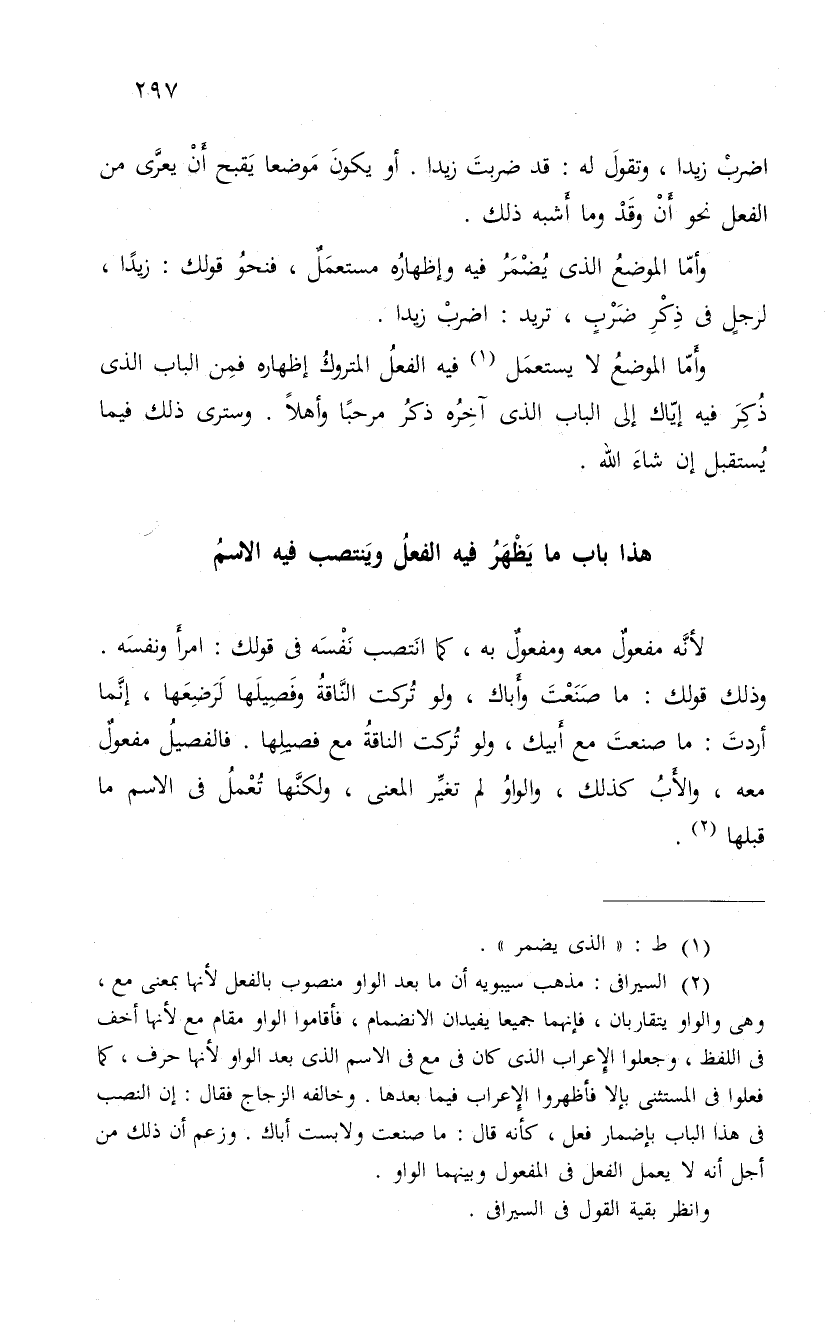 ٢٩٧
اضربْ زيدا ، وتقولَ له : قد ضربتَ زيدا . أو يكونَ مَوضعا يَقبح أَنْ يعرَّى من
الفعل نحو أَنْ وقَدْ وما أَشبه ذلك .
وأمّا الموضعُ الذى يُضْمَرُ فيه وإظهارُه مستعمَلٌ ، فنحوُ قولك : زيدًا ،
لرجلٍ فى ذِكْرِ ضَرْبٍ ، تريد : اضربْ زيدا .
وأَمّا الموضعُ لا يستعمَل (١) فيه الفعلُ المتروكُ إظهاره فمِن الباب الذى
ذُكِرَ فيه إيّاك إلى الباب الذى آخِرُه ذكرُ مرحبًا وأهلاً . وسترى ذلك فيما
يُستقبل إن شاءَ الله .
هذا باب ما يَظْهَرُ فيه الفعلُ ويَنتصب فيه الاسمُ
لأنَّه مفعولٌ معه ومفعولٌ به ، كما انَتصب نَفْسَه فى قولك : امرأَ ونفسَه .
وذلك قولك : ما صنَعْتَ وأَباك ، ولو تُركت النَّاقةُ وفَصِيلَها لَرَضِعَها ، إنَّما
أردتَ : ما صنعتَ مع أَبيك ، ولو تُركت الناقةُ مع فصيلِها . فالفصيلُ مفعولٌ
معه ، والأَبُ كذلك ، والواوُ لم تغيِّر المعنى ، ولكنَّها تُعْمِلُ فى الاسم ما
قبلها (٢) .
(١) ط : « الذى يضمر » .
(٢) السيرافى : مذهب سيبويه أن ما بعد الواو منصوب بالفعل لأنها بمعنى مع ،
وهى والواو يتقاربان ، فإنهما جميعا يفيدان الانضمام ، فأقاموا الواو مقام مع لأنها أخف
فى اللفظ ، وجعلوا الإعراب الذى كان فى مع فى الاسم الذى بعد الواو لأنها حرف ، كما
فعلوا فى المستثنى بإلا فأظهروا الإعراب فيما بعدها . وخالفه الزجاج فقال : إن النصب
فى هذا الباب بإضمار فعل ، كأنه قال : ما صنعت ولابست أباك . وزعم أن ذلك من
أجل أنه لا يعمل الفعل فى المفعول وبينهما الواو .
وانظر بقية القول فى السيرافى .